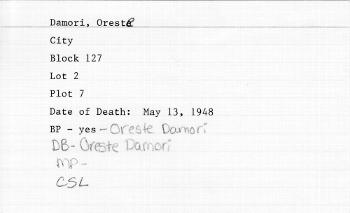 Damori, Oreste
City
Block 127
Lot 2
Plot 7
Date of Death: May 13, 1948
BP - yes - Oreste Damori
DB- Oreste Damori
MP-
CSL